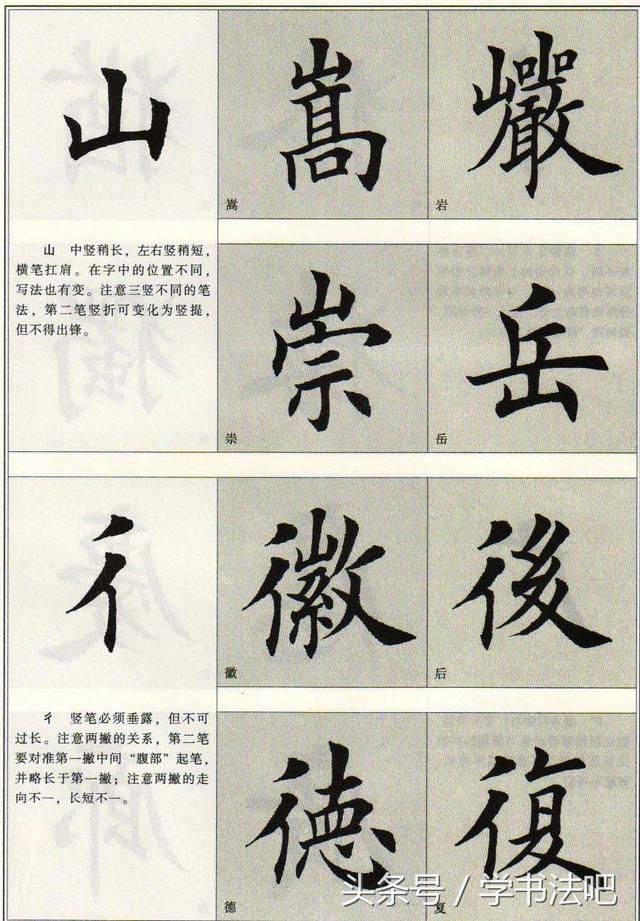 山
嵩
巖
嵩
岩
山 中竖稍长，左右竖稍短，
横笔扛肩。在字中的位置不同，
写法也有变。注意三竖不同的笔
法，第二笔竖折可变化为竖提，
但不得出锋。
崇
岳
崇
岳
彳
徽
後
徽
后
彳 竖笔必须垂露，但不可
过长。注意两撇的关系，第二笔
要对准第一撇中间“腹部”起笔，
并略长于第一撇；注意两撇的走
向不一，长短不一。
德
復
德
复
头条号 / 学书法吧